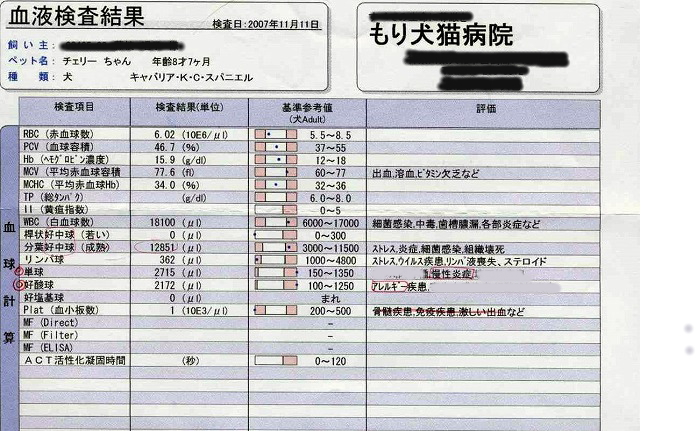 血液検査結果
検査日:2007年11月11日
飼 い 主:
ペット名: チェリー ちゃん 年齢8才7ヶ月
種 類: 犬 キャバリア・K・C・スパニエル
もり犬猫病院
検査項目 検査結果(単位) 基準参考値 評価
(犬Adult)
RBC (赤血球数) 6.02 (10E6/μl) 5.5~8.5
PCV (血球容積) 46.7 (%) 37~55
Hb (ヘモグロビン濃度) 15.9 (g/dl) 12~18
MCV (平均赤血球容積 77.6 (fl) 60~77 出血,溶血,ビタミン欠乏など
MCHC (平均赤血球Hb) 34.0 (%) 32~36
TP (総タンパク) (g/dl) 6.0~8.0
II (黄疸指数) 0~5
WBC (白血球数) 18100 (μl) 6000~17000 細菌感染,中毒,歯槽膿漏,各部炎症など
桿状好中球 (若い) 0 (μl) 0~300
分葉好中球 (成熟) 12851 (μl) 3000~11500 ストレス,炎症,細菌感染,組織壊死
リンパ球 362 (μl) 1000~4800 ストレス,ウイルス疾患,リンパ液喪失、ステロイド
単球 2715 (μl) 150~1350 慢性炎症
好酸球 2172 (μl) 100~1250 アレルギー疾患,
好塩基球 0 (μl) まれ
Plat (血小板数) 1 (10E3/μl) 200~500 骨髄疾患,免疫疾患,激しい出血など
MF (Direct) −
MF (Filter) −
MF (ELISA) −
ACT活性化凝固時間 (秒) 0~120
血球計算